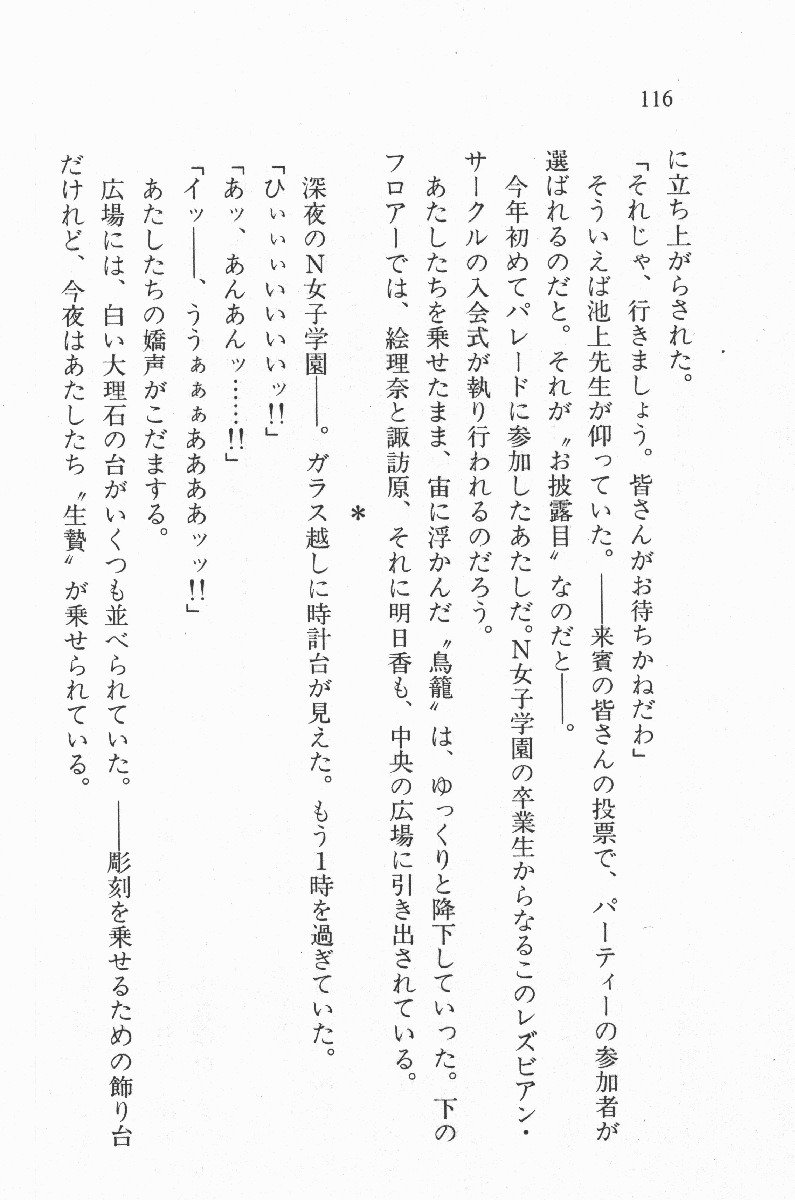 116
に立ち上がらされた。
「それじゃ、行きましょう。皆さんがお待ちかねだわ」
そういえば池上先生が仰っていた。――来賓の皆さんの投票で、パーティーの参加者が
選ばれるのだと。それが〝お披露目〟なのだと――。
今年初めてパレードに参加したあたしだ。Ｎ女子学園の卒業生からなるこのレズビアン・
サークルの入会式が執り行われるのだろう。
あたしたちを乗せたまま、宙に浮かんだ〝鳥籠〟は、ゆっくりと降下していった。下の
フロアーでは、絵理奈と諏訪原、それに明日香も、中央の広場に引き出されている。
＊
深夜のＮ女子学園――。ガラス越しに時計台が見えた。もう１時を過ぎていた。
「ひぃぃぃいいいいッ!!」
「あッ、あんあんッ……!!」
「イッ――、ううぁぁぁああああッッ!!」
あたしたちの嬌声がこだまする。
広場には、白い大理石の台がいくつも並べられていた。――彫刻を乗せるための飾り台
だけれど、今夜はあたしたち〝生贄〟が乗せられている。